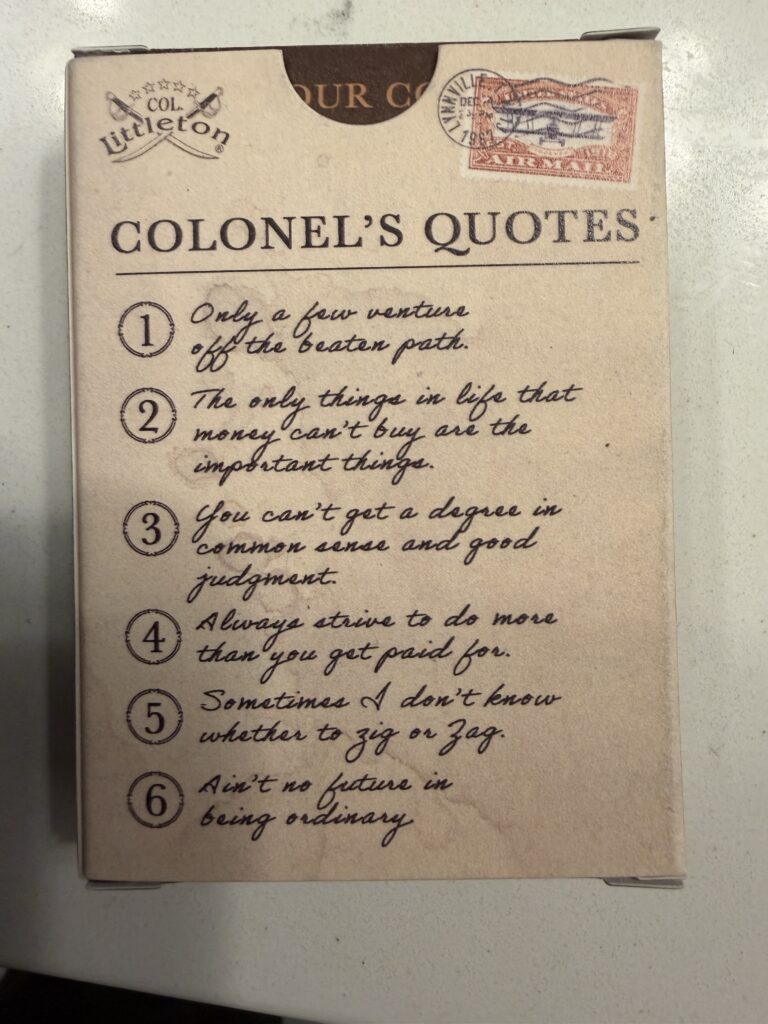 COL.
Littleton
®
OUR CO
LYNNVILLE
DEC
1987
AIR MAIL
COLONEL'S QUOTES
1 Only a few venture
off the beaten path.
2 The only things in life that
money can't buy are the
important things.
3 You can't get a degree in
common sense and good
judgment.
4 Always strive to do more
than you get paid for.
5 Sometimes I don't know
whether to zig or Zag.
6 Ain't no future in
being ordinary